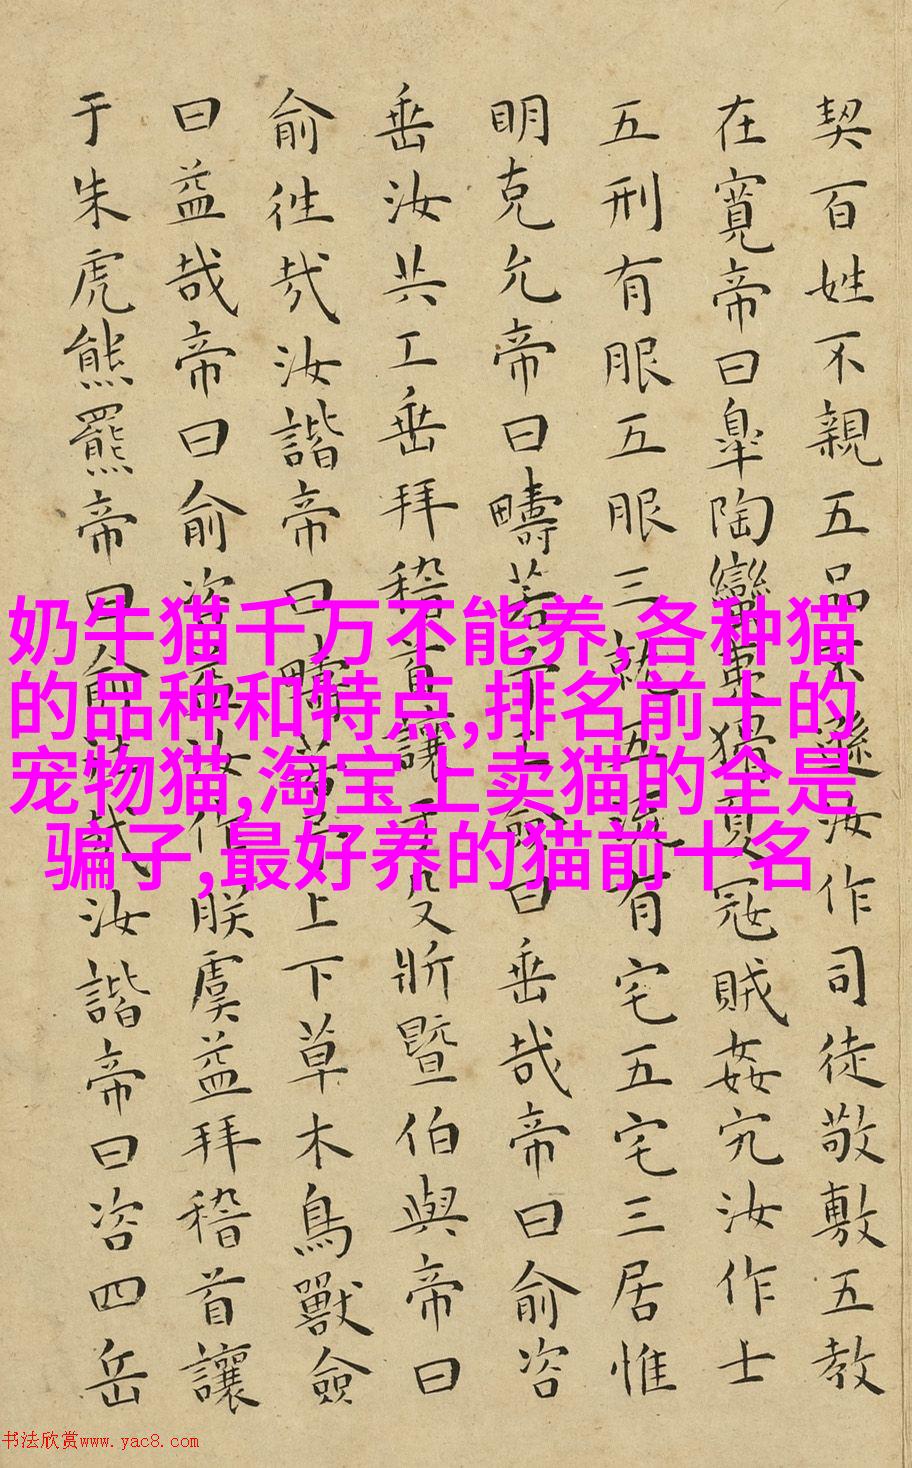 契百姓不親五品不遜汝作司徒敬敷五教
在寬帝曰臯陶蠻夷猾夏冦賊姦宄汝作士
五刑有服五服三就五流有宅五宅三居惟
明克允帝曰疇若予工僉曰垂哉帝曰俞咨
垂汝共工垂拜稽首讓于殳斨暨伯與帝曰
俞往哉汝諧帝曰疇若予上下草木鳥獸僉
曰益哉帝曰俞咨益汝作朕虞益拜稽首讓
于朱虎熊羆帝曰俞往哉汝諧帝曰咨四岳
奶牛猫千万不能养,各种猫
的品种和特点,排名前十的
宠物猫,淘宝上卖猫的全是
骗子,最好养的猫前十名
书法欣赏www.yac8.com